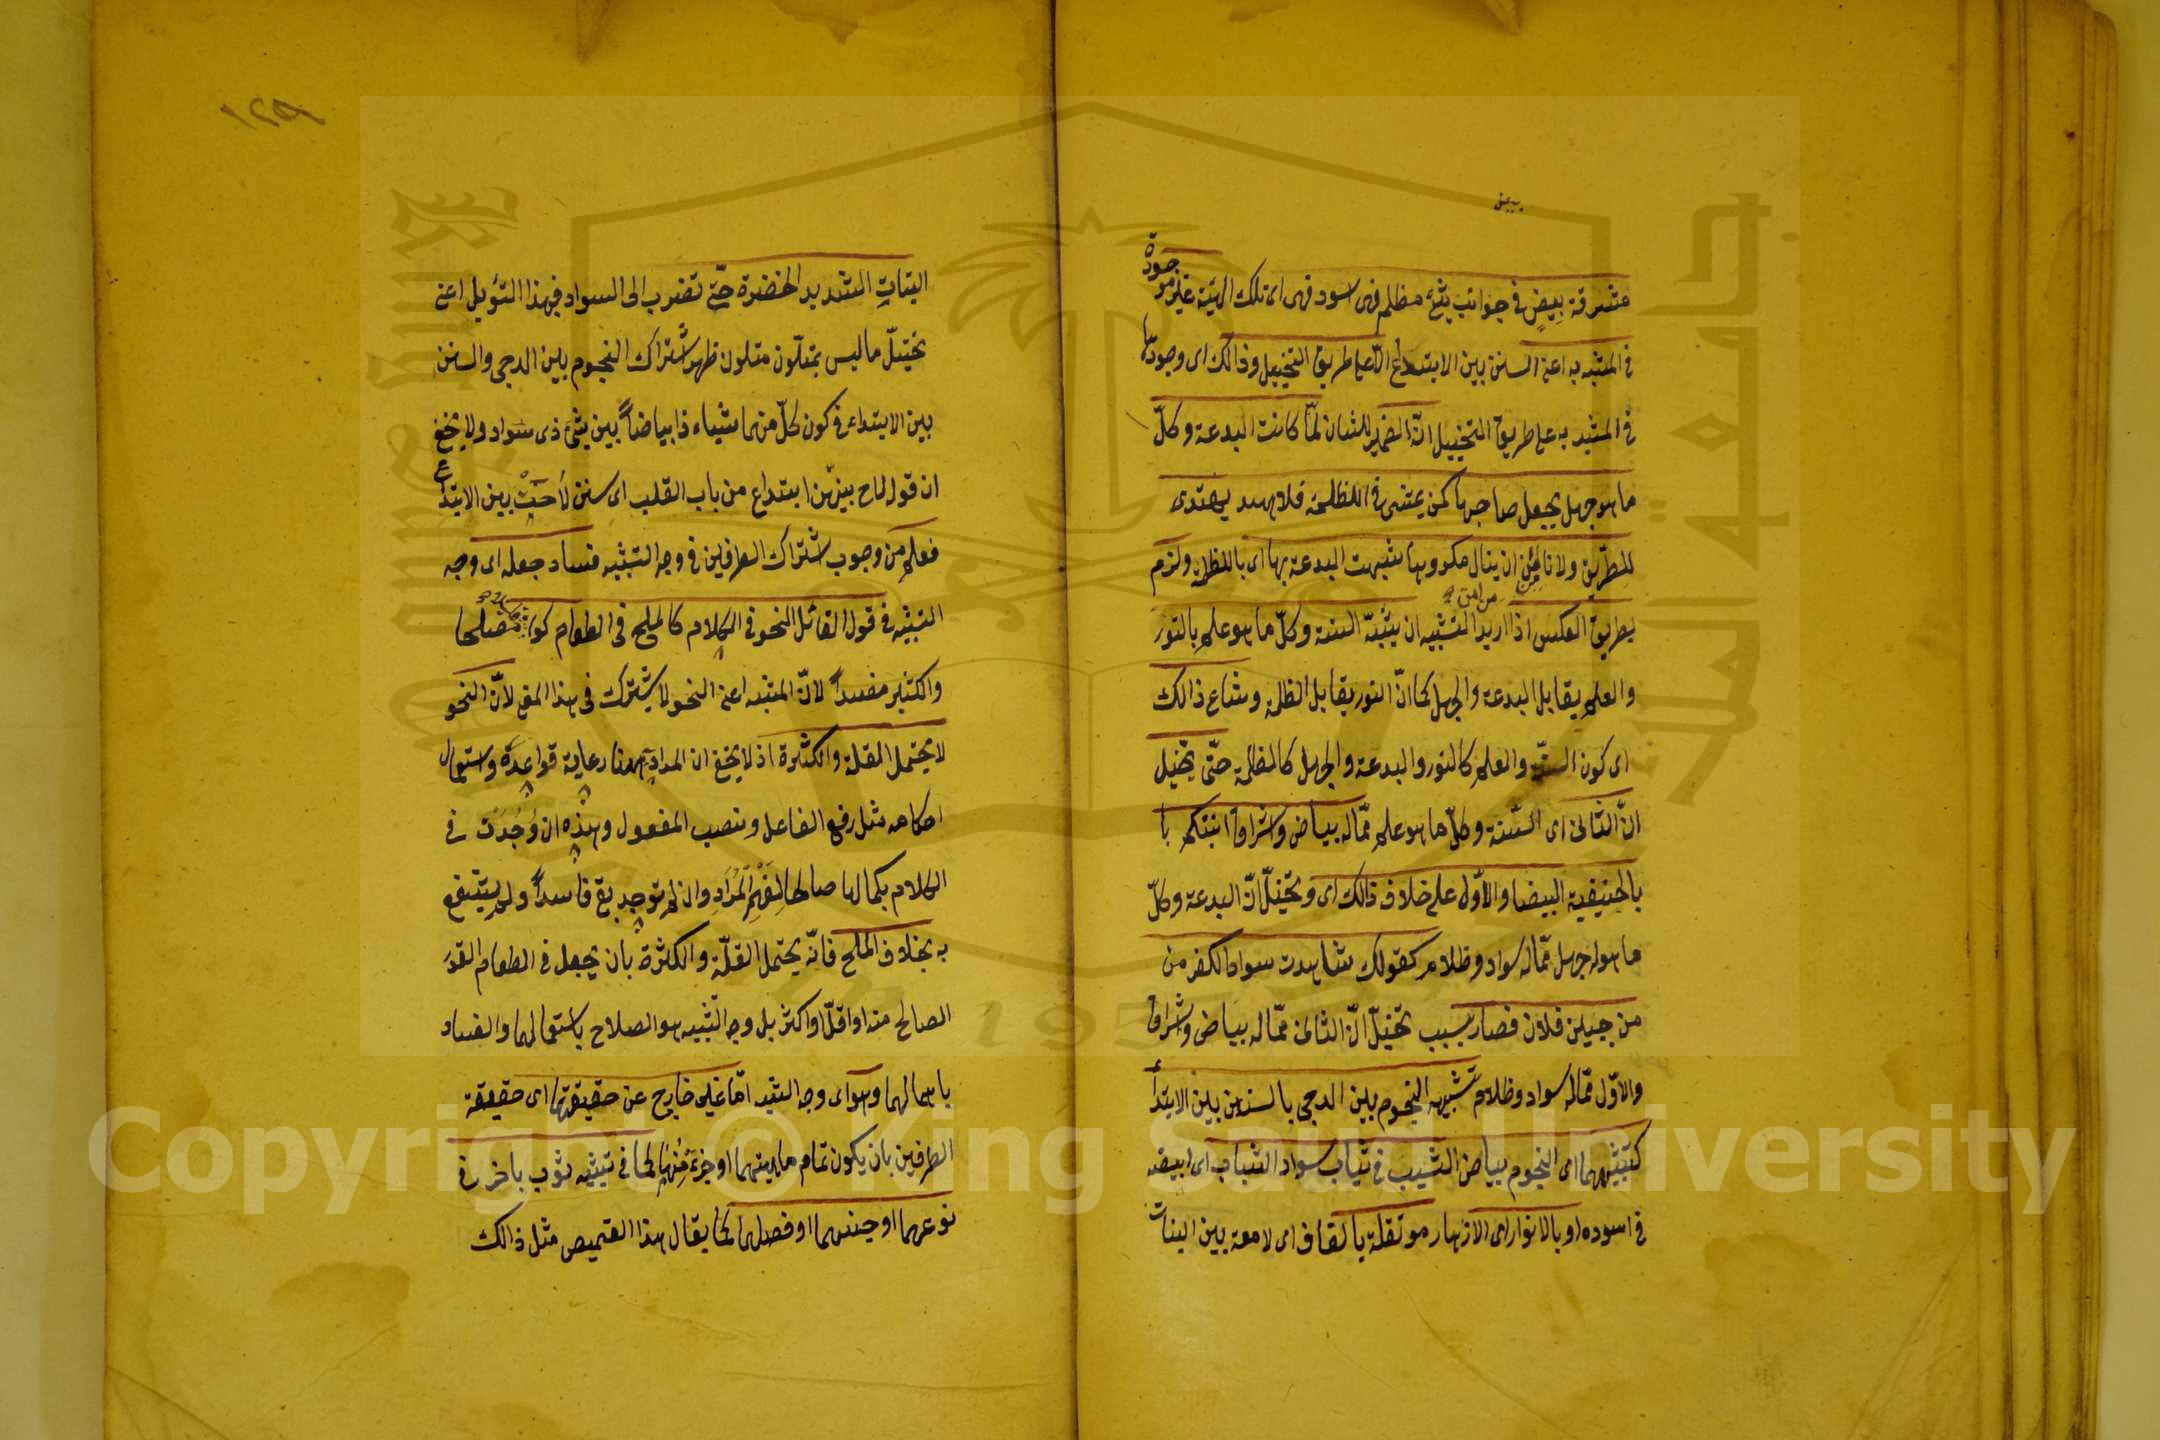 مشرقة بيض في جوانب شئ مظلم فهى اسود فهى اى تلك الهيئة غير موجودة
في المشبه به اعنى السنن بين الابتداع الا على طريق التخييل وذالك اى وجودها
في المشبه به على طريق التخييل انه الضمير للشان لما كانت البدعة وكل
ما هو جهل يجعل صاحبها كمن يمشى في الظلمة فلا يهتدى
للطريق ولا يأمن من ان ينال مكروها شبهت البدعة بها اى بالظلمة ولزم
بطريق العكس اذا اريد التشبيه ان يشبه السنة وكل ما هو علم بالنور
والعلم يقابل البدعة والجهل كما ان النور يقابل الظلمة وشاع ذالك
اى كون السنة والعلم كالنور والبدعة والجهل كالظلمة حتى تخيل
ان الثانى اى السنة وكل ما هو علم مما له بياض واشراق اتيتكم با
بالحنيفية البيضا والاول على خلاف ذالك اى وتخيل ان البدعة وكل
ما هو له جهل مما له سواد وظلام كقولك شاهدت سواد الكفر من
من جبين فلان فصار بسبب تخيل ان الثانى مما له بياض واشراق
والاول مما له سواد وظلام تشبيه النجوم بين الدجى بالسنن بين الابتداء
كتشبيهها اى النجوم ببياض الشيب في ثياب سواد الشباب اى ابيضه
في اسوده او بالانوار اى الازهار موتقلة بالقاف اى لامعة بين النبات
النباتِ الشديد الخضرة حتى تضرب الى السواد فبهذا التؤيل اعنى
تخيل ما ليس بمتلون متلون ظهر اشتراك النجوم بين الدجى والسنن
بين الابتداع في كون كل منهما شياء ذا بياضاً بين شئ ذى سواد ولا يخفى
ان قوله لاح بينهن ابتداع من باب القلب اى سنن لاحت بين الابتداع
فعلم من وجوب اشتراك الطرفين في وجه التشبيه فساد جعله اى وجه
التشبيه في قول القائل النحو في الكلام كالملح في الطعام كون مصلحا
والكثير مفسداً لان المشبه اعنى النحو لا يشترك في هذا المعنى لان النحو
لا يحتمل القلة والكثرة اذ لا يخفى ان المراد به هنا رعاية قواعده واستعمال
احكامه مثل رفع الفاعل ونصب المفعول وهذه ان وُجدت في
الكلام بكمالها صالحا لفهم المراد وان لم توجد بقى فاسداً ولم ينتفع
به بخلاف الملح فانه يحتمل القلة والكثرة بان يجعل في الطعام القدر
الصالح منه او اقل او اكثر بل وجه التشبيه هو الصلاح باستعمالهما والفساد
باهمالهما وهو اى وجه التشبه اما غير خارج عن حقيقتها اى حقيقة
الطرفين بان يكون تمام ماهيتهما او جزء منها كما في تشبيه ثوب باخر في
نوعهما او جنسهما او فصلهما كما يقال هذا القميص مثل ذالك
Copyright © King Saud University